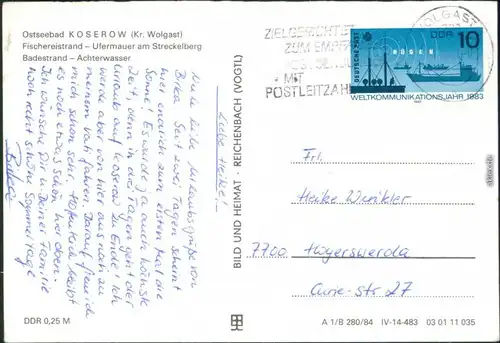 Ostseebad KOSEROW (Kr. Wolgast)
Fischereistrand – Ufermauer am Streckelberg
Badestrand – Achterwasser
Liebe Heike!
Viele liebe Urlaubsgrüße von
Birka. Seit zwei Tagen scheint
hier endlich zum ersten Mal die
Sonne! Es wurde ja auch höchste
Zeit, denn in drei Tagen geht der
Urlaub auf Koserow zu Ende! Ich
werde aber von hier aus noch zu
meinem Vati fahren. Darauf freue ich
mich schon sehr. Hoffentlich bleibt
es noch etwas schön hier oben.
Ich wünsche Dir u. Deiner Familie
noch recht schöne Sommertage
BILD UND HEIMAT · REICHENBACH (VOGTL)
ZIELGERICHTET
ZUM EMPF
MIT
POSTLEITZAHL
WOLGAST
DEUTSCHE POST
DDR 10
RÜGEN
WELTKOMMUNIKATIONSJAHR 1983
Frl.
Heike Winkler
7700 Hoyerswerda
Curie-str. 27
DDR 0,25 M
A 1/B 280/84 IV-14-483 03 01 11 035